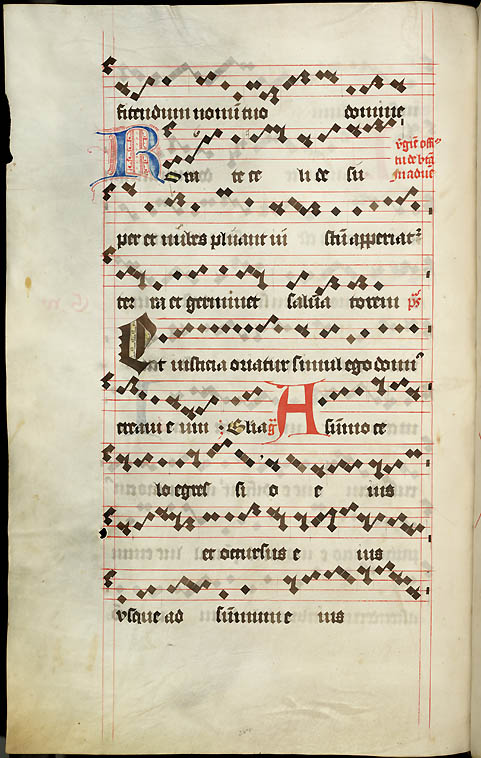 fitendum nomini tuo domine
Rorate celi de su
per et nubes pluant iu stum apperiat
ter ra et germinet salua torem ps
Et iusticia oriatur simul ego domi
creaui e um Glia gr A summo ce
lo egres si o e ius
et occursus e ius
vsque ad summum e ius